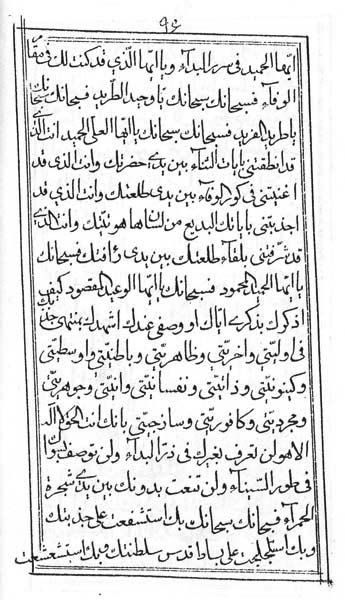 ٩۶
ايّها الحميد فى سرير البدآء و يا ايّها الّذى قد كنت لك فى مقام
الوفآء فسبحانك سبحانك يا وحيد الطّريد فسبحانك سبحانك
يا طريد الفريد فسبحانك سبحانك يا ايّها العلى الحميد انت الّذى
قد انطقتنى بايات الثّنآء بين يدى حضرتك وانت الّذى قد
اغنيتنى فى كور الوفآء بين يدى طلعتك وانت الّذى قد
اجذبتنى باياتك البديع من انشاها هويّتك وانت الّذى
قد شرّفتنى بلقآء طلعتك بين يدى رأفتك فسبحانك
يا ايّها الحميد المحمود فسبحانك يا ايّها الوعيد المقصود كيف
اذكرك بذكرى ايّاك او وصفى عندك اشهدك بمنتهى جذبك
فى اوليّتى واخريّتى وظاهريّتى وباطنيّتى واوسطيّتى
وكينونيّتى وذاتيّتى ونفسانيّتى وانيّتى وجوهريّتى
ومجرديّتى وكافوريّتى وساذجيّتى بانّك انت الحقّ لا اله
الا هو لن تعرف بغيرك فى ذرّ البدآء ولن توصف بسوآك
فى طور السّينآء ولن تنعت بدونك بين يدى شجرة
الحمرآء فسبحانك سبحانك بك استشفعت على جذبتك
وبك استجلجلت على بساط قدس سلطنتك وبك استشعشعت